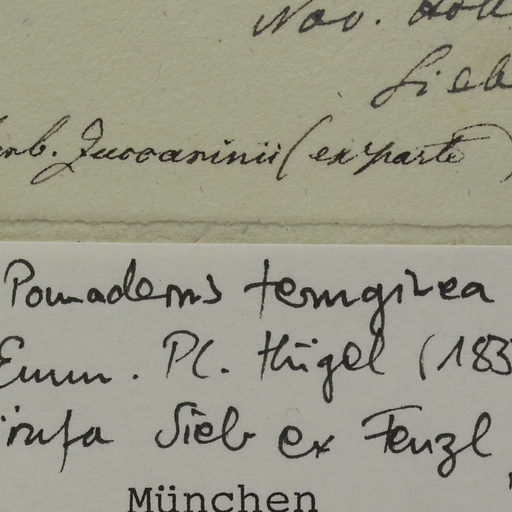 Nov. Holl
Sieb
erb. Zuccarinii (ex parte)
Pomaderris ferruginea
Enum. Pl. Hügel (183
Sieb ex Fenzl
München